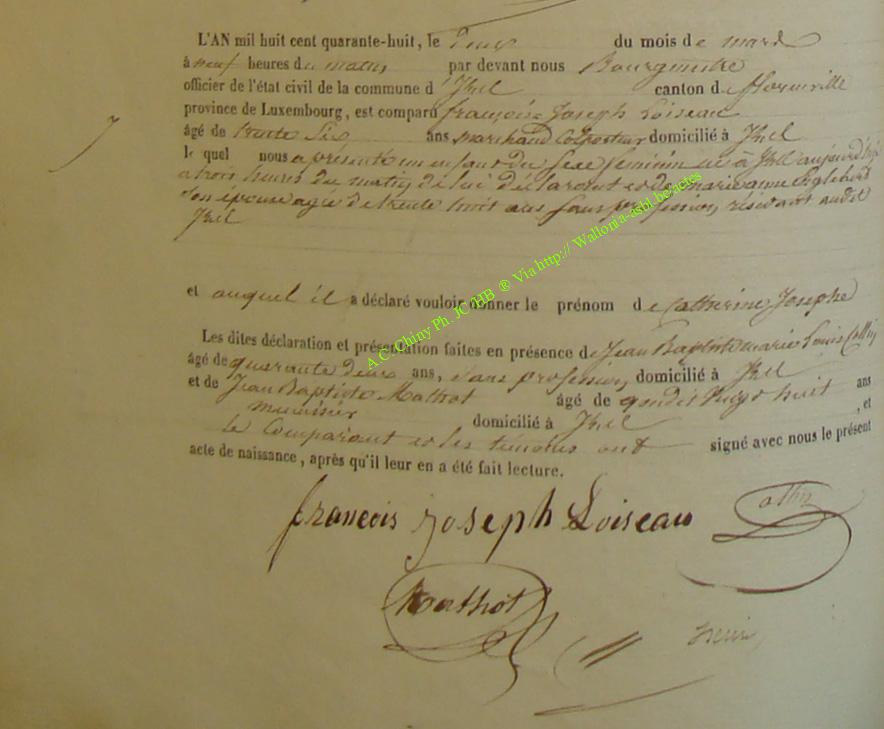 L'AN mil huit cent quarante-huit, le deux du mois de mard
à neuf heures du matin par devant nous Bourgmestre
officier de l'état civil de la commune d'Izel canton de florenville
province de Luxembourg, est comparu françois Joseph Loiseau
âgé de trente six ans marchand colporteur domicilié à Izel
le quel nous a présenté un enfant du sexe féminin né à Izel aujourd'hui
a trois heures du matin de lui déclarant et de marie anne Englebert
son épouse agée de trente huit ans sans profession, résidant audit
Izel
et auquel il a déclaré vouloir donner le prénom de Catherine Josephe
Les dites déclaration et présentation faites en présence de Jean Baptiste marie Louis Collin
âgé de quarante deux ans, sans profession, domicilié à Izel
et de Jean Baptiste Mathot âgé de vingt huit ans
menuisier domicilié à Izel , et
le Comparant et les témoins ont signé avec nous le présent
acte de naissance, après qu'il leur en a été fait lecture.
francois joseph Loiseau
Collin
Mathot
A C Chiny Ph. JC HB ® Via http:// Wallonia-asbl.be/actes